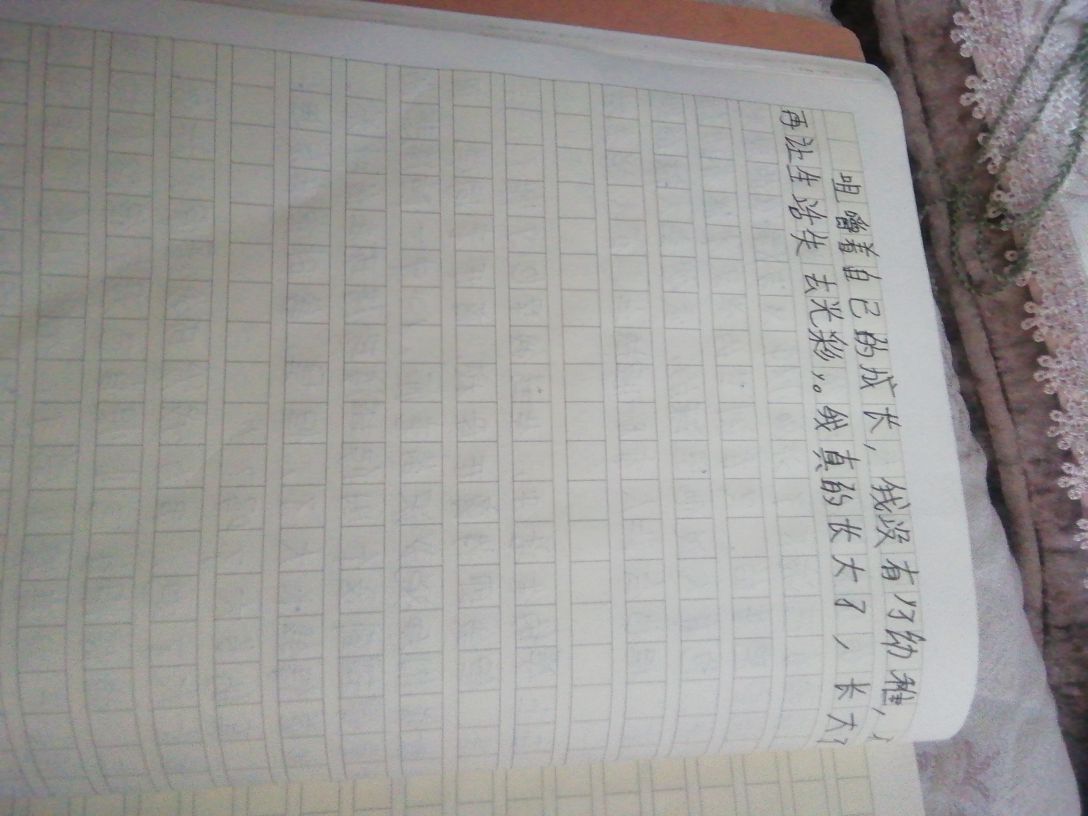 咀嚼着自己的成长，我没有了幼稚，
再让生活失去光彩，。我真的长大了，长大了